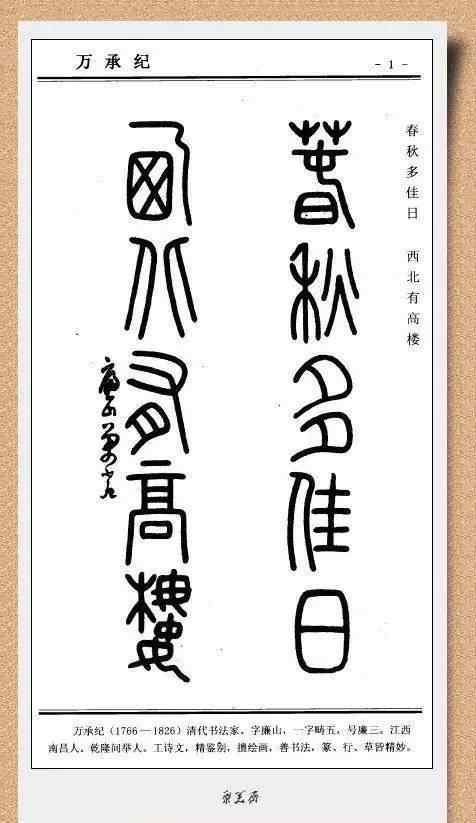 万承纪
- 1 -
春秋多佳日 西北有高楼
春秋多佳日
西北有高楼
万承纪（1766—1826）清代书法家、字廉山，一字畴五，号廉三。江西
南昌人、乾隆间举人、工诗文，精鉴别，擅绘画，善书法，篆、行、草皆精妙。